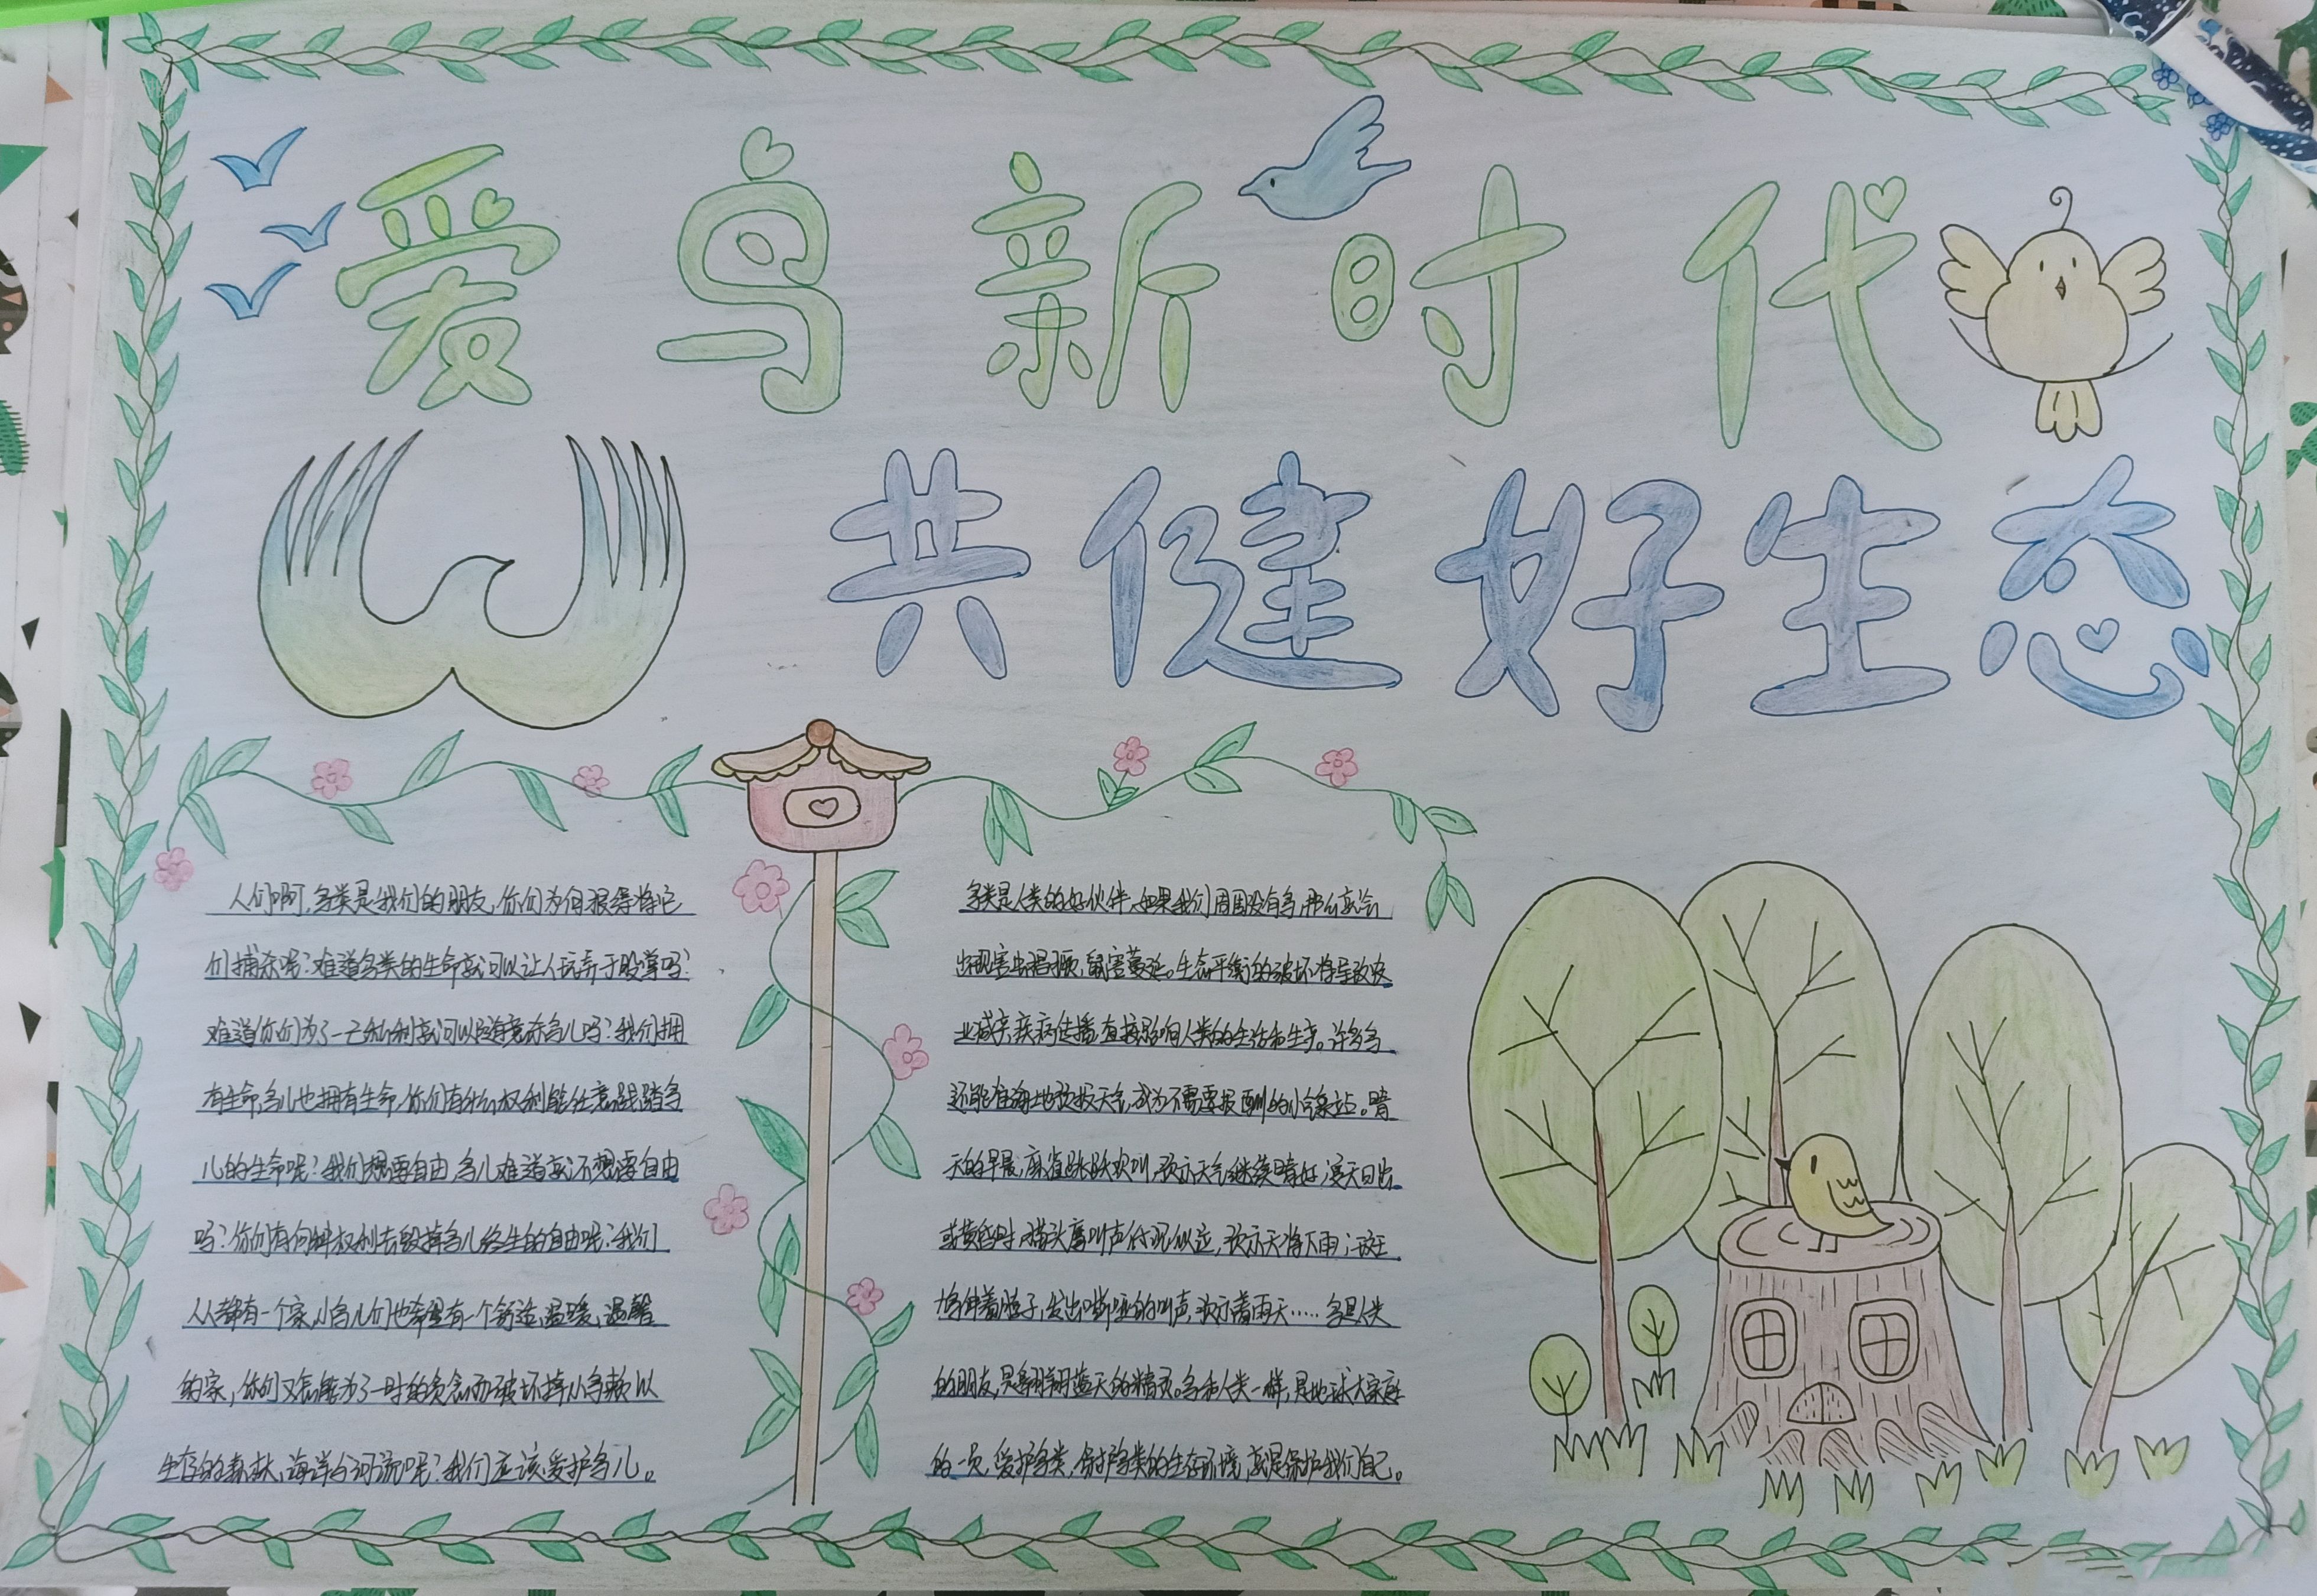 爱鸟新时代
共健好生态
人们啊,鸟类是我们的朋友,你们为何狠得将它
们捕杀呢?难道鸟类的生命就可以让人玩弄于股掌吗?
难道你们为了一己私利就可以随意杀鸟儿吗?我们拥
有生命,鸟儿也拥有生命,你们有什么权利能任意践踏鸟
儿的生命呢?我们想要自由,鸟儿难道就不想要自由
吗?你们有何种权利去毁掉鸟儿终生的自由呢?我们
人人都有一个家,小鸟儿们也希望有一个舒适、温暖、温馨
的家,你们又怎能为了一时的贪念而破坏掉小鸟赖以
生存的森林,海洋与河流呢?我们应该爱护鸟儿。
鸟类是人类的好伙伴,如果我们周围没有鸟,那么就会
出现害虫猖獗,鼠害蔓延。生态平衡的破坏将导致农
业减产,疾病传播,直接影响人类的生活和生产。许多鸟
还能准确地预报天气,成为不需要报酬的小气象站。晴
天的早晨,麻雀跳跃欢叫,预示天气继续晴好;夏天日出
或黄昏时,猫头鹰叫声低沉似泣,预示天将下雨;斑
鸠伸着脖子,发出嘶哑的叫声,预示着雨天……鸟是人类
的朋友,是翱翔蓝天的精灵。鸟和人类一样,是地球大家庭
的一员,爱护鸟类,保护鸟类的生存环境,就是保护我们自己。